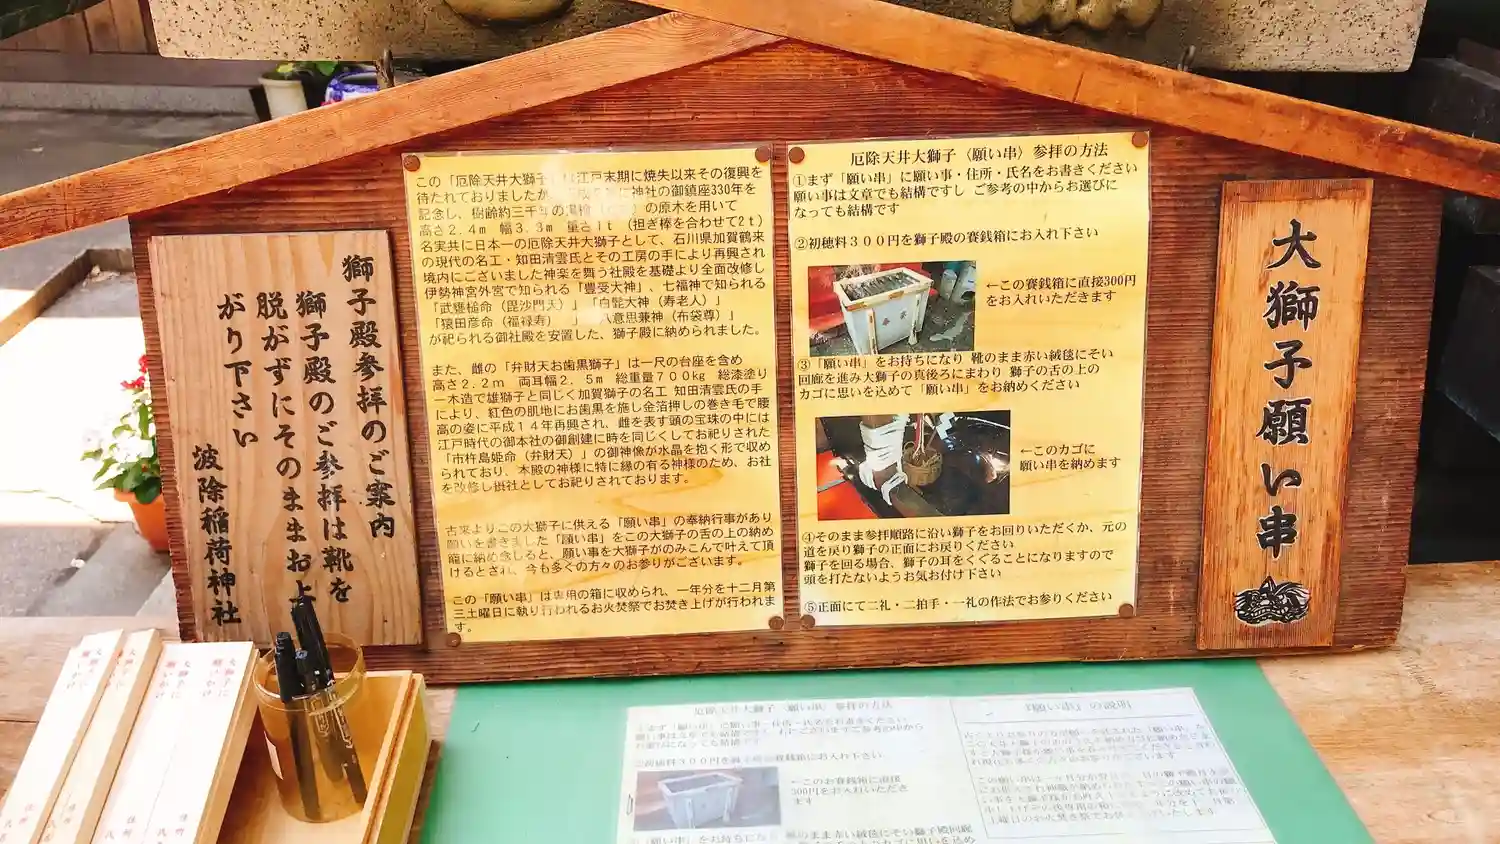 大獅子願い串
厄除天井大獅子〈願い串〉参拝の方法
①まず「願い串」に願い事・住所・氏名をお書きください
願い事は文章でも結構ですし ご参考の中からお選びに
なっても結構です
②初穂料300円を獅子殿の賽銭箱にお入れ下さい
←この賽銭箱に直接300円
をお入れいただきます
③「願い串」をお持ちになり 靴のまま赤い絨毯にそい
回廊を進み大獅子の真後ろにまわり 獅子の舌の上の
カゴに思いを込めて「願い串」をお納めください
←このカゴに
願い串を納めます
④そのまま参拝順路に沿い獅子をお回りいただくか、元の
道を戻り獅子の正面にお戻りください
獅子を回る場合、獅子の耳をくぐることになりますので
頭を打たないようお気お付け下さい
⑤正面にて二礼・二拍手・一礼の作法でお参りください
この「厄除天井大獅子」は江戸末期に焼失以来その復興を
待たれておりましたが 神社の御鎮座330年を
記念し、樹齢約三千年の の原木を用いて
高さ2.4m 幅3.3m 重さ1t (担ぎ棒を合わせて2t)
名実共に日本一の厄除天井大獅子として、石川県加賀鶴来
の現代の名工・知田清雲氏とその工房の手により再興され
境内にございました神楽を舞う社殿を基礎より全面改修し
伊勢神宮外宮で知られる「豊受大神」、七福神で知られる
「武甕槌命(毘沙門天)」「白髭大神(寿老人)」
「猿田彦命(福禄寿)」「八意思兼神(布袋尊)」
が祀られる御社殿を安置した、獅子殿に納められました。
また、雌の「弁財天お歯黒獅子」は一尺の台座を含め
高さ2.2m 両耳幅2.5m 総重量700kg 総漆塗り
一木造で雄獅子と同じく加賀獅子の名工 知田清雲氏の手
により、紅色の肌地にお歯黒を施し金箔押しの巻き毛で腰
高の姿に平成14年再興され、雌を表す頭の宝珠の中には
江戸時代の御本社の御創建に時を同じくしてお祀りされた
「市杵島姫命(弁財天)」の御神像が水晶を抱く形で収め
られており、本殿の神様に特に縁の有る神様のため、お社
を改修し摂社としてお祀りされております。
古来よりこの大獅子に供える「願い串」の奉納行事があり
願いを書きました「願い串」をこの大獅子の舌の上の納め
籠に納め念じると、願い事を大獅子がのみこんで叶えて頂
けるとされ、今も多くの方々のお参りがございます。
この「願い串」は専用の箱に収められ、一年分を十二月第
三土曜日に執り行われるお火焚祭でお焚き上げが行われま
す。
獅子殿参拝のご案内
獅子殿のご参拝は靴を
脱がずにそのままお上
がり下さい
波除稲荷神社
厄除天井大獅子〈願い串〉参拝の方法
①まず「願い串」に願い事・住所・氏名をお書きください
←このお賽銭箱に直接
300円をお入れいただき
ます
『願い串』の説明
大獅子に
願いかけ
住所
氏名
大獅子に
願いかけ
住所